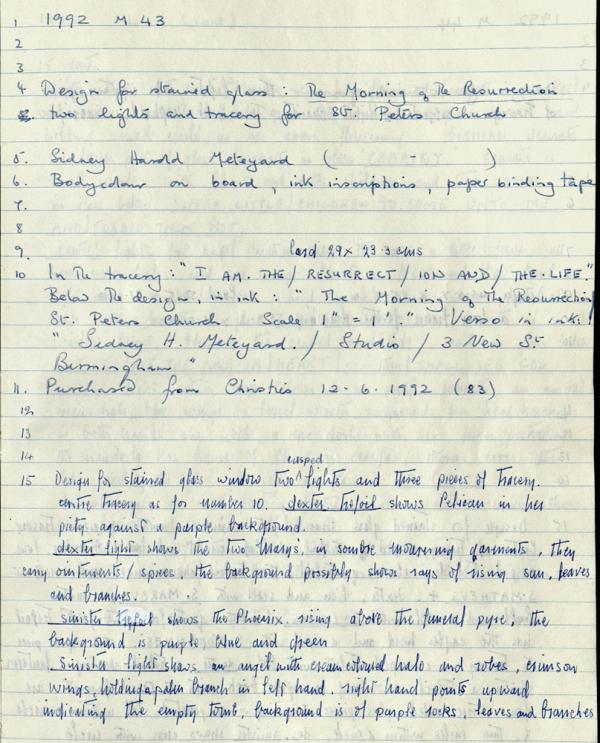 1 1992 M 43
2
3
4 Design for stained glass : The Morning of The Resurrection
two lights and tracery for St. Peters Church
5. Sidney Harold Meteyard ( - )
6. Bodycolour on board, ink inscriptions, paper binding tape
7.
8
9. board 29 x 23.3 cms
10 In the tracery : " I AM. THE / RESURRECT / ION AND / THE. LIFE."
Below the design, in ink : " The Morning of The Resurrection
St. Peters Church Scale 1" = 1'." Verso in ink :
" Sidney H. Meteyard. / Studio / 3 New St.
Birmingham "
11. Purchased from Christies 12. 6. 1992 (83)
12
13
14
cusped
15 Design for stained glass window two ^ lights and three pieces of tracery.
centre tracery as for number 10. dexter trefoil shows Pelican in her
piety against a purple background.
dexter light shows the two Marys, in sombre mourning garments, they
carry ointments / spices, the background possibly shows rays of rising sun, leaves
and branches.
sinister trefoil shows the Phoenix rising above the funeral pyre, the
background is purple blue and green
Sinister light shows an angel with cream coloured halo and robes, crimson
wings, holding a palm branch in left hand. right hand points upward
indicating the empty tomb, background is of purple rocks, leaves and branches